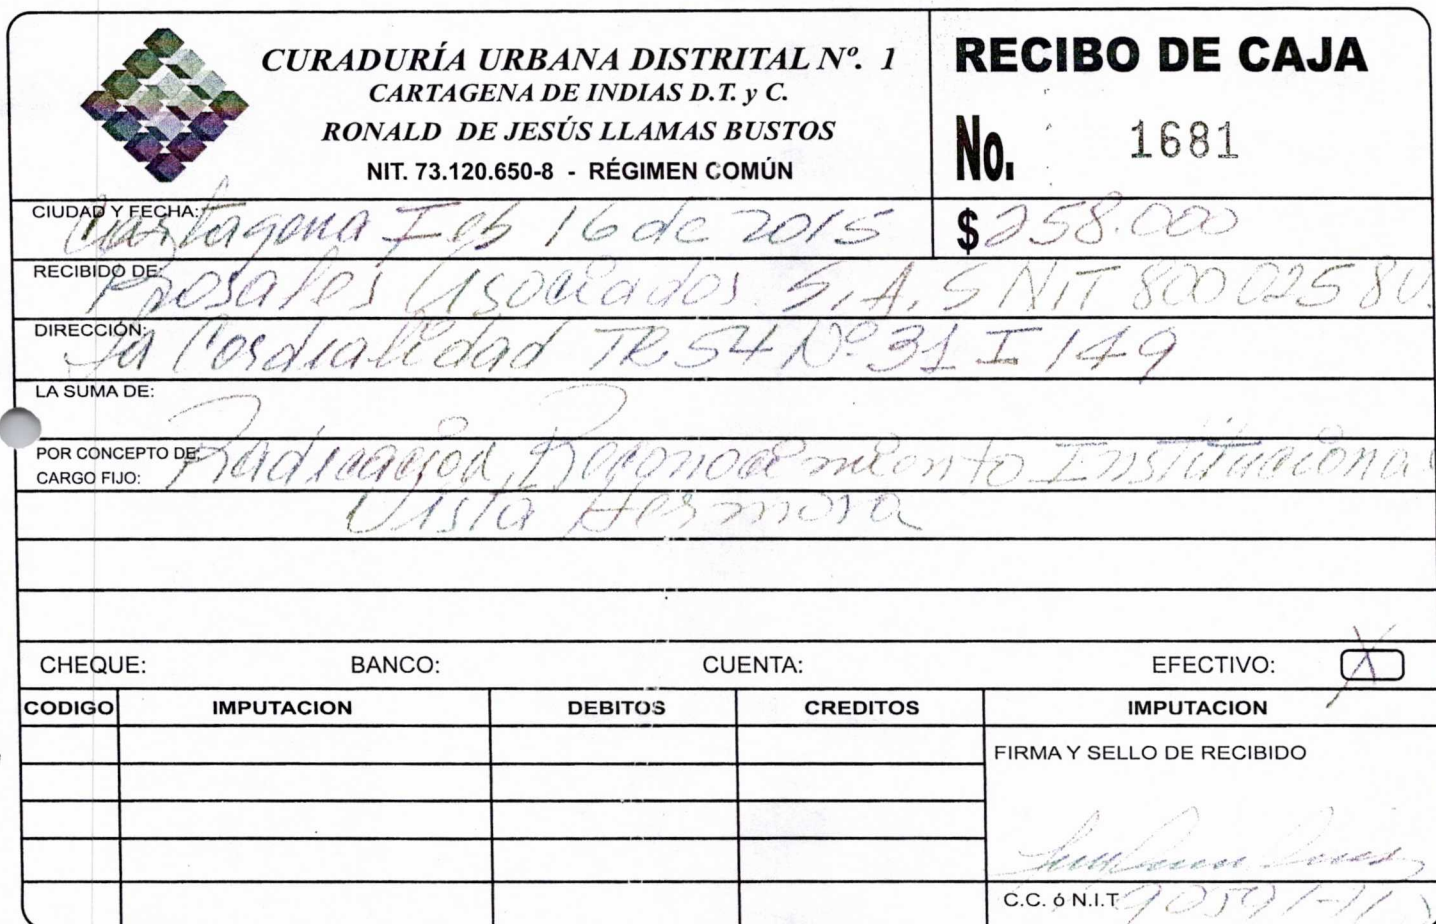 CURADURÍA URBANA DISTRITAL Nº. 1
CARTAGENA DE INDIAS D.T. y C.
RONALD DE JESÚS LLAMAS BUSTOS
NIT. 73.120.650-8 - RÉGIMEN COMÚN
RECIBO DE CAJA
No. 1681
CIUDAD Y FECHA: Cartagena Feb 16 de 2015
$ 258.000
RECIBIDO DE: Rosales Asociados S.A.S NIT 80002580
DIRECCIÓN: La Cordialidad TR 54 Nº 31 I 149
LA SUMA DE:
POR CONCEPTO DE: Radicación Reconocimiento Institucional
CARGO FIJO:
Vista Hermosa
CHEQUE: BANCO: CUENTA: EFECTIVO: X
CODIGO IMPUTACION DEBITOS CREDITOS IMPUTACION
FIRMA Y SELLO DE RECIBIDO
C.C. ó N.I.T